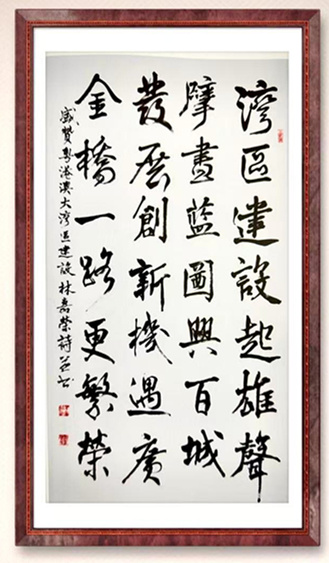 湾區建設起雄聲
擘畫藍圖興百城
發展創新機遇廣
金橋一路更繁榮
盛贊粵港澳大湾區建設林嘉榮詩并书